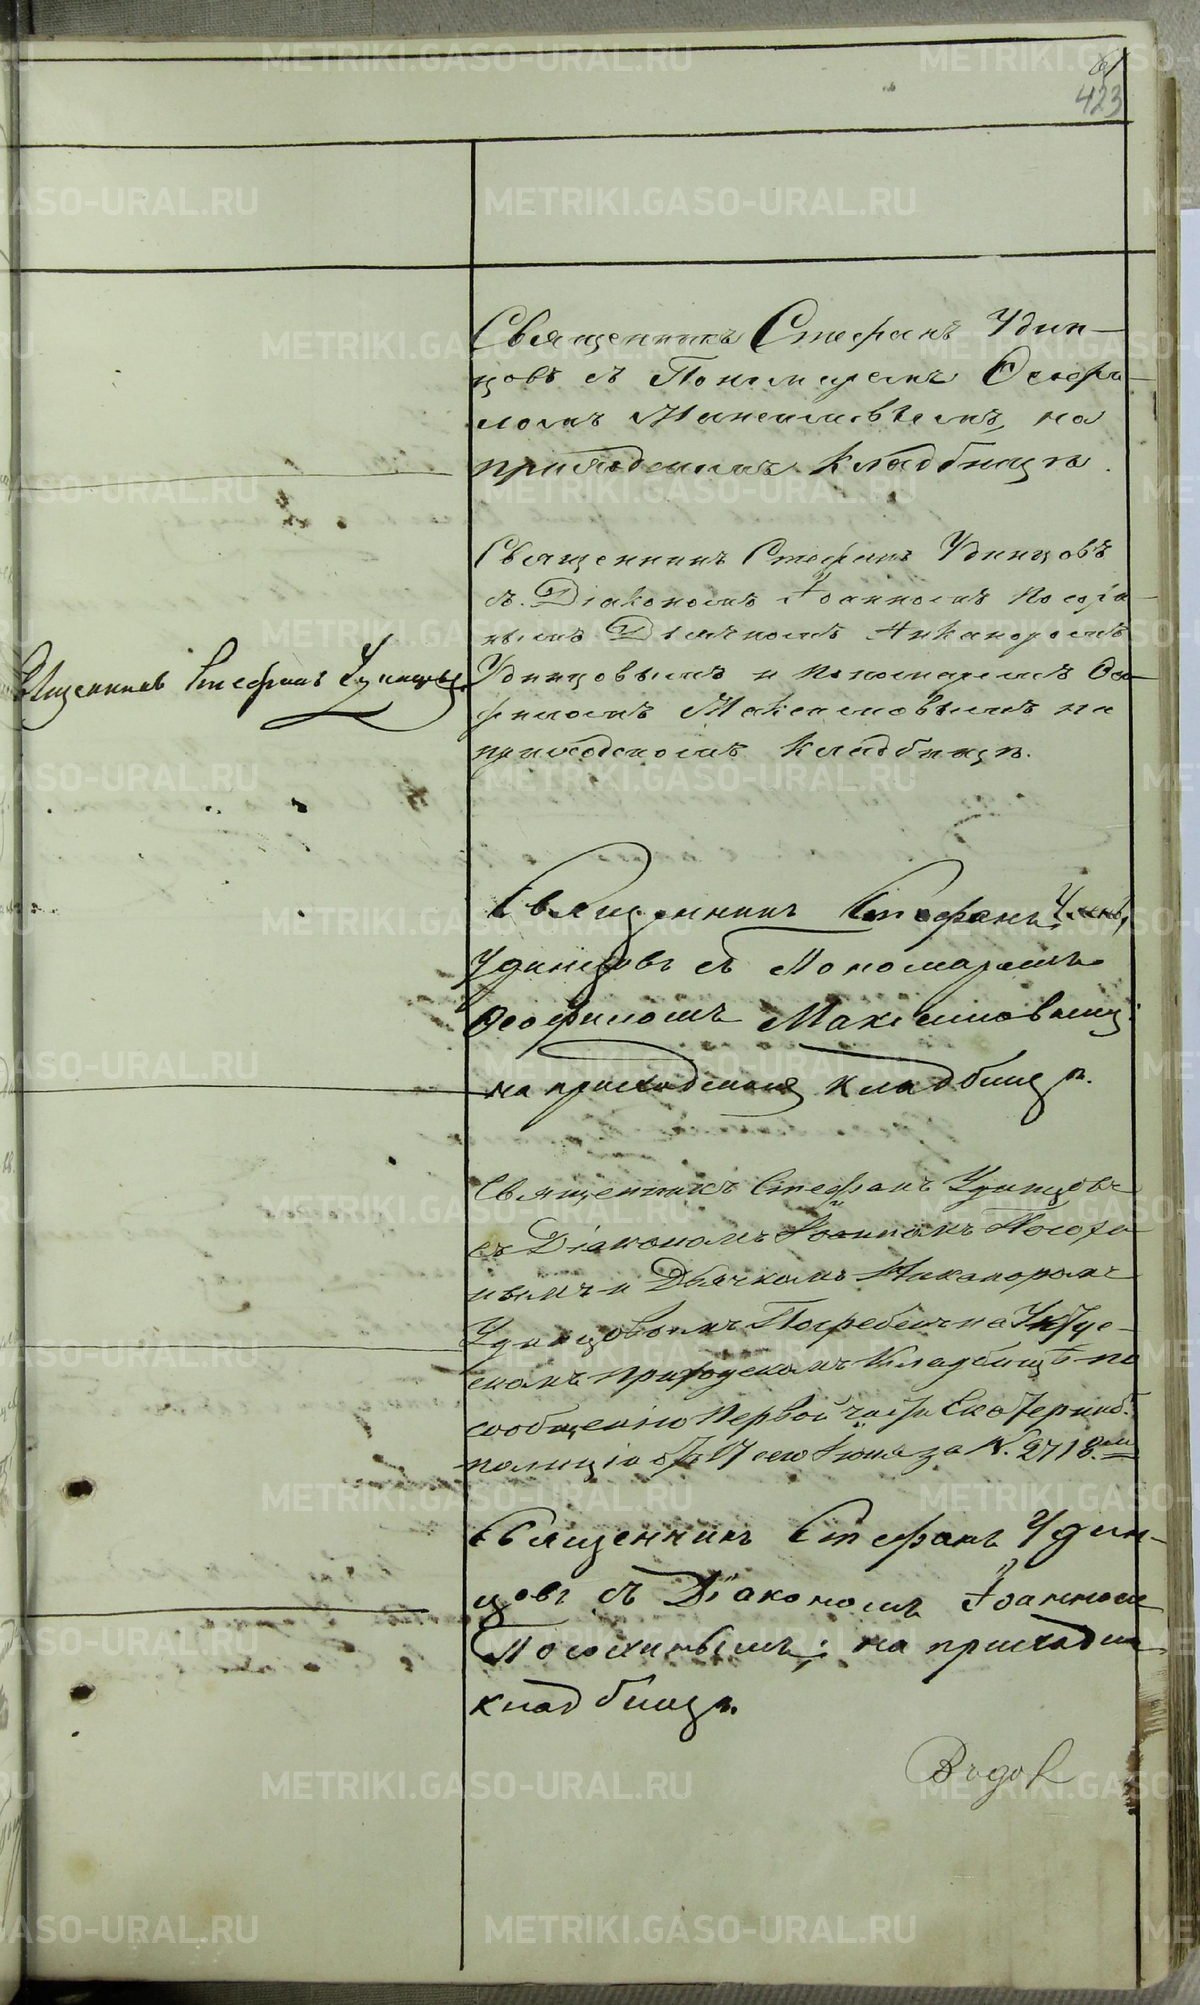 423
Священникъ Стефанъ Удин-
цовъ съ Пономаремъ Ѳеофи-
ломъ Максимовымъ, на
приходскомъ кладбищѣ.
Священникъ Стефанъ Удинцовъ
съ Діакономъ Іоанномъ Посохи-
нымъ Дьячкомъ Никаноромъ
Священникъ Стефанъ Удинцовъ
Удинцовымъ и Пономаремъ Ѳео-
филомъ Максимовымъ на
приходскомъ кладбищѣ.
Священникъ Стефанъ
Удинцовъ съ Пономаремъ
Ѳеофиломъ Максимовымъ
на приходскомъ кладбищѣ.
Священникъ Стефанъ Удинцовъ
съ Діакономъ Іоанномъ Посохи-
нымъ и Дьячкомъ Никаноромъ
Удинцовымъ Погребенъ на Уктус-
скомъ приходскомъ кладбищѣ по
сообщенію Первой части Екатеринб.
полиціи отъ 17 сего Іюня за №. 2718.мъ
Священникъ Стефанъ Удин-
цовъ съ Діакономъ Іоанномъ
Посохинымъ; на приходск
кладбищѣ.
METRIKI.GASO-URAL.RU